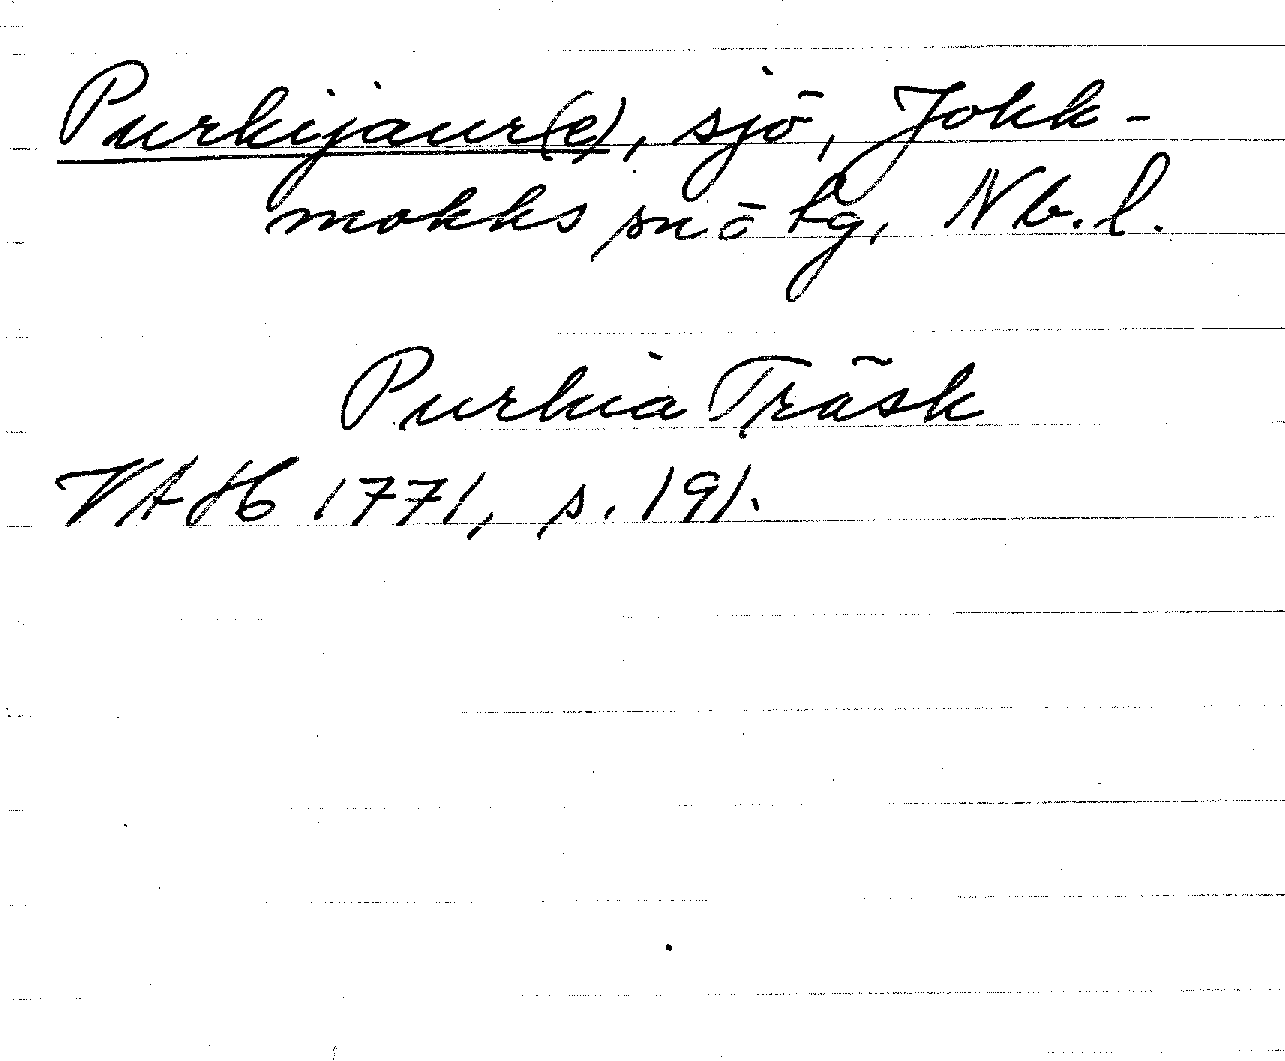 Purkijaur(e), sjö, Jokk-
mokks sn ö tg, Nb.l.
Purkia Träsk
VAH 1771, s. 191.